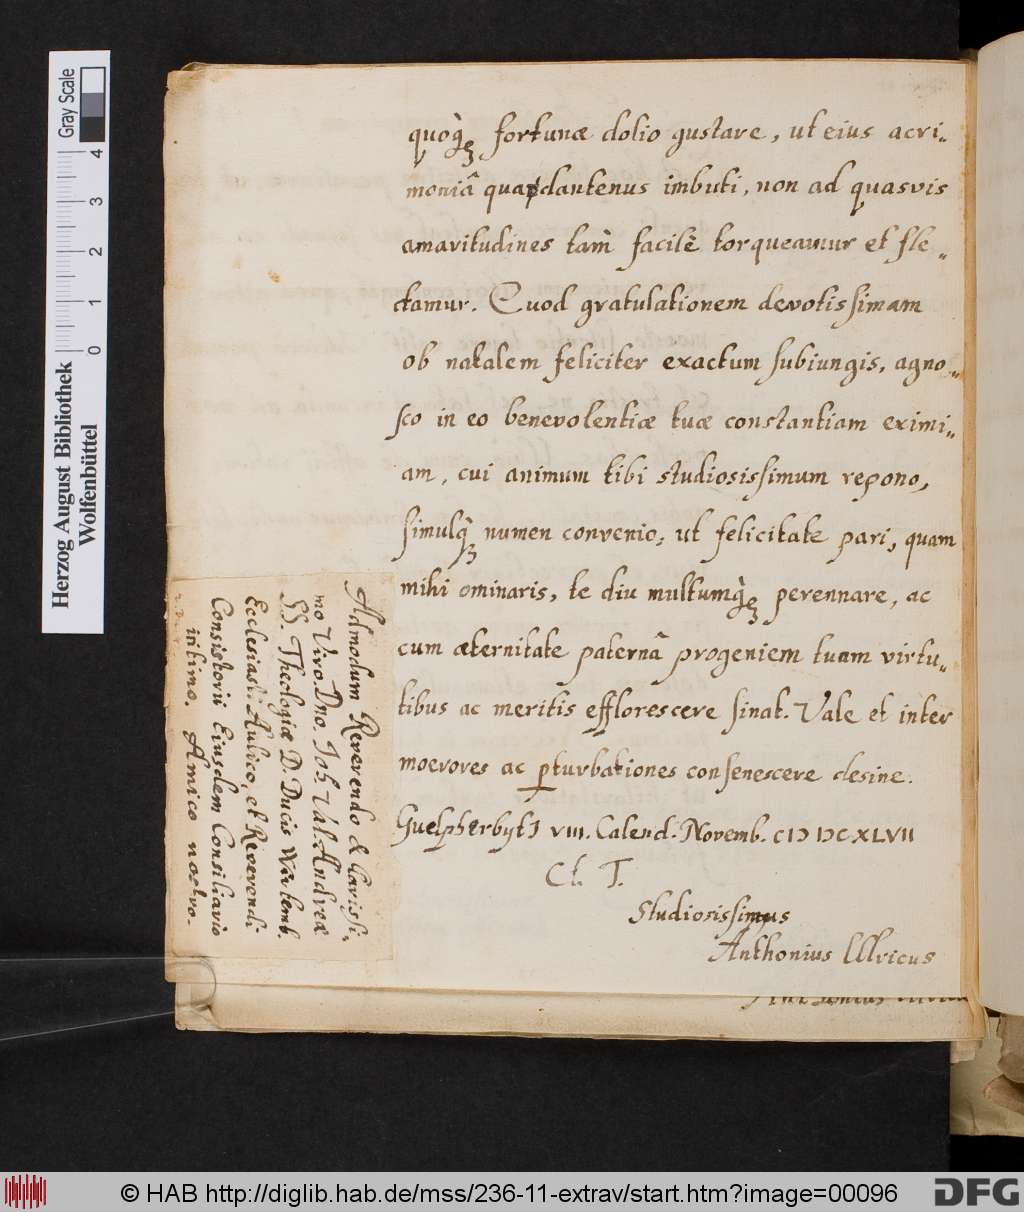 quoq; fortunæ dolio gustare, ut eius acri-
moniâ quadantenus imbuti, non ad quasvis
amaritudines tam facilè torqueamur et fle-
ctamur. Quod gratulationem devotissimam
ob natalem feliciter exactum subiungis, agno-
sco in eo benevolentiæ tuæ constantiam eximi-
am, cui animum tibi studiosissimum repono,
simulq; numen convenio, ut felicitate pari, quam
mihi ominaris, te diu multumq; perennare, ac
cum æternitate paternâ progeniem tuam virtu-
tibus ac meritis efflorescere sinat. Vale et inter
moerores ac pturbationes consenescere desine.
Guelpherbyti VIII. Calend. Novemb. CIↃ IↃCXLVII
Ct. T.
Studiosissimus
Anthonius Ulricus
Admodum Reverendo & Clarissi-
mo Viro. Dno. Joh. Val. Andreæ
SS. Theologiæ D. Ducis Wirtemb.
Ecclesiasti Aulico, et Reverendi
Consistorii Eiusdem Consiliario
intimo. Amico nostro.
Gray Scale
4 3 2 1 0
Herzog August Bibliothek
Wolfenbüttel
© HAB http://diglib.hab.de/mss/236-11-extrav/start.htm?image=00096
DFG